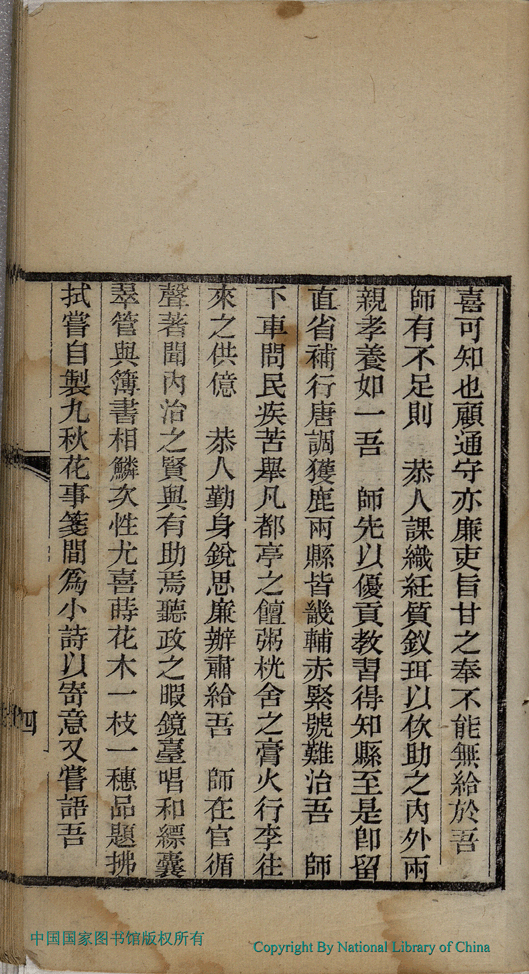 喜可知也顧通守亦廉吏旨甘之奉不能無給於吾
師有不足則　恭人課織紝質釵珥以佽助之內外兩
親孝養如一吾　師先以優貢教習得知縣至是卽留
直省補行唐調獲鹿兩縣皆畿輔赤緊號難治吾　師
下車問民疾苦舉凡都亭之饘粥桄舍之膏火行李往
來之供億　恭人勤身銳思廉辦肅給吾　師在官循
聲著聞內治之賢與有助焉聽政之暇鏡臺唱和縹囊
翠管與簿書相鱗次性尤喜蒔花木一枝一穗品題拂
拭嘗自製九秋花事箋間爲小詩以寄意又嘗語吾
四
中国国家图书馆版权所有
Copyright By National Library of China